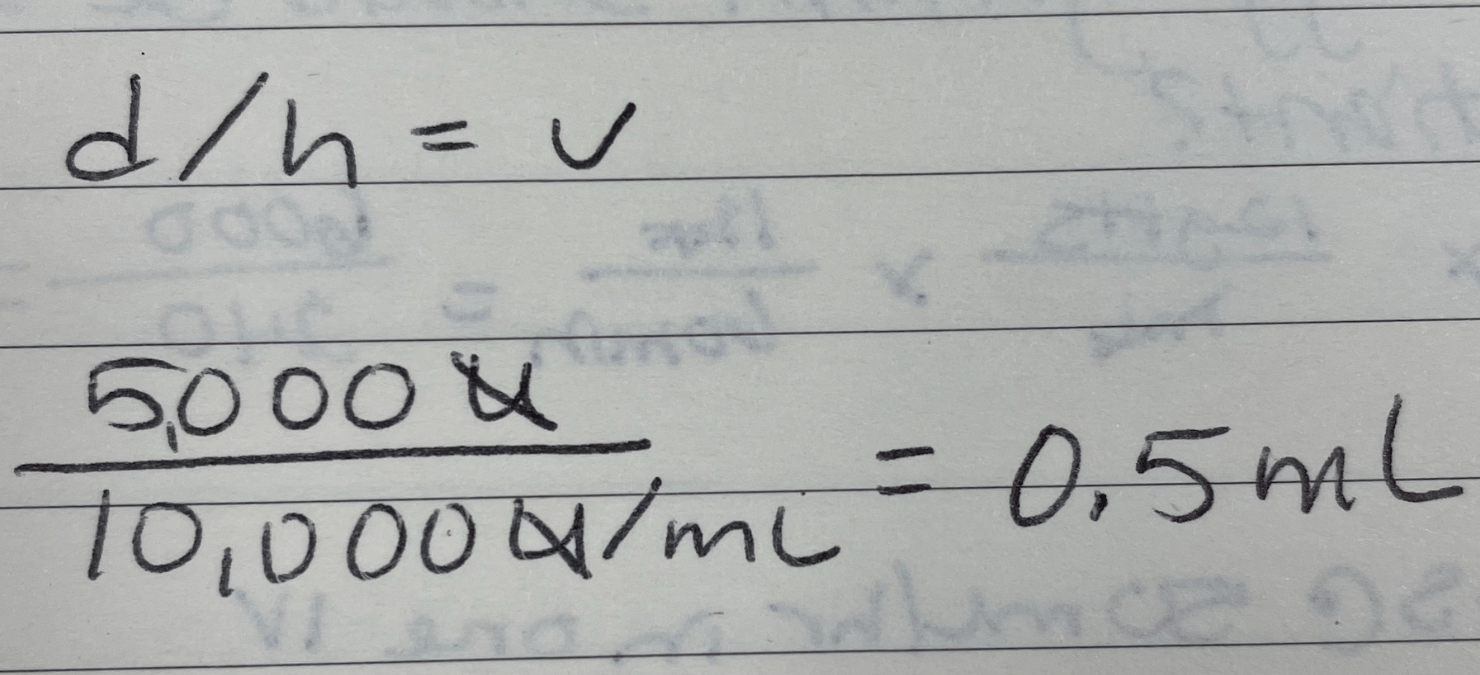 d/h = v
5,000 U
10,000 U/mL = 0.5 mL